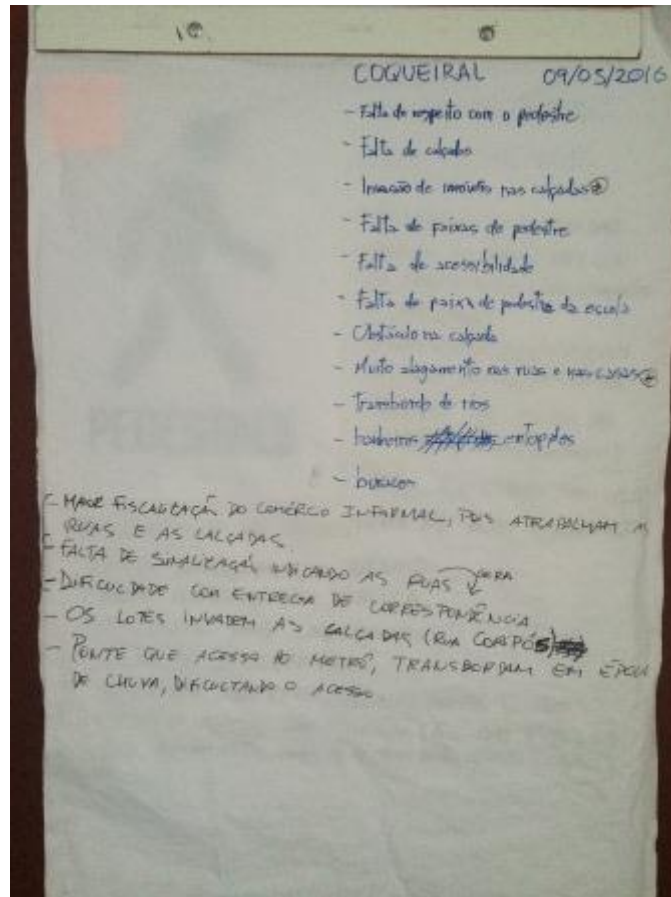 COQUEIRAL 09/05/2016
- Falta de respeito com o pedestre
- Falta de calçadas
- Invasão de imóveis nas calçadas
- Falta de faixas de pedestre
- Falta de acessibilidade
- Falta de faixa de pedestre da escola
- Obstáculo na calçada
- Muito alagamento nas ruas e nas casas
- Transbordo de rios
- entopidos
- buracos
- MAIOR FISCALIZAÇÃO DO COMÉRCIO INFORMAL, POIS ATRAPALHAM AS
RUAS E AS CALÇADAS.
- FALTA DE SINALIZAÇÃO INDICANDO AS RUAS GERA
- DIFICULDADE COM ENTREGA DE CORRESPONDÊNCIA
- OS LOTES INVADEM AS CALÇADAS (RUA
- PONTE QUE ACESSA AO METRÔ, TRANSBORDAM EM ÉPOCA
DE CHUVA, DIFICULTANDO O ACESSO.